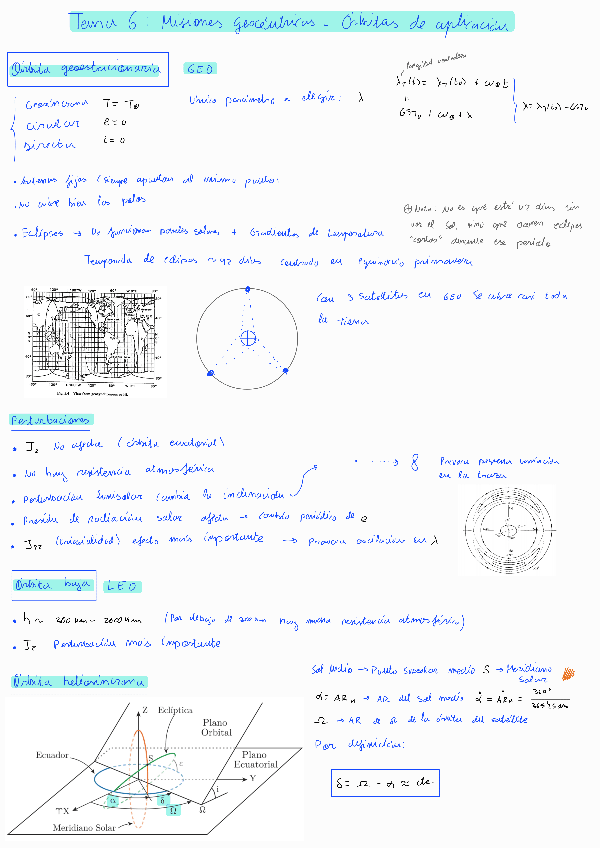 Tema 6: Misiones geocéntricas - Órbitas de aplicación
Órbita geoestacionaria GEO
Geosíncrona T = T⊕
circular e = 0
directa i = 0
Único parámetro a elegir: λ
longitud verdadera
λ = λ
· Antenas fijas (siempre apuntan al mismo punto)
· No cubre bien los polos
· Eclipses → No funcionan paneles solares + Gradientes de temperatura
Temporada de eclipses ~ 47 días centrado en equinoccio primavera
Nota: No es que esté 47 días sin
ver el sol, sino que ocurren eclipses
"cortos" durante ese periodo
Con 3 satélites en GEO se cubre casi toda
la tierra
Perturbaciones
· J2 No afecta (órbita ecuatorial)
· No hay resistencia atmosférica
· Perturbación lunisolar cambia la inclinación
· Presión de radiación solar afecta → cambio periódico de e
· J22 efecto más importante → Provoca oscilación en λ
8 Provoca pequeña variación
en la traza
Órbita baja LEO
· h ~ 200 km - 2000 km (Por debajo de 200 km hay mucha resistencia atmosférica)
· J2 Perturbación más importante
Órbita heliosíncrona
Sol Medio → Punto subsolar medio S → Meridiano
Solar
α = AR → AR del sol medio
Ω → AR de Ω de la órbita del satélite
Por definición:
δ = Ω - α ≈ cte.
Z
Eclíptica
Plano
Orbital
Ecuador
S
ε
Plano
Ecuatorial
Y
α
δ
Ω
Ω
i
ϒX
Meridiano Solar